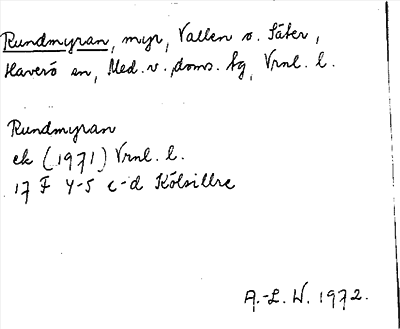 Rundmyran, myr, Vallen o. Säter,
Haverö sn, Med. v. doms. hg, Vrnl. l.
Rundmyran
ek (1971) Vrnl. l.
17 F 4-5 c-d Kölsillre
A.-L. W. 1972.